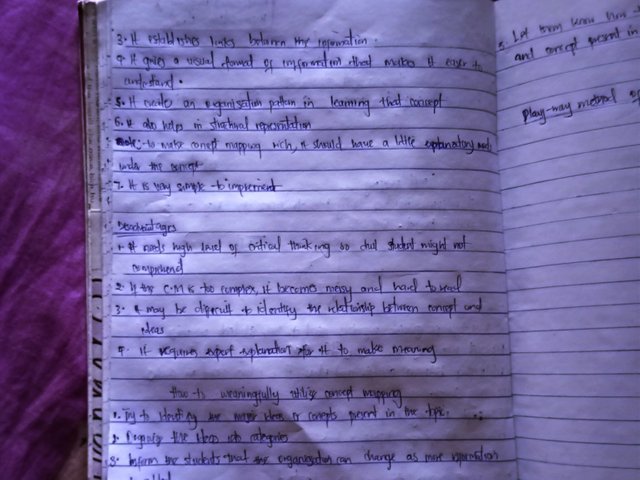 3. It establishes links between the information.
4. It gives a visual format of information that makes it easier to
understand.
5. It create an organisation pattern in learning that concept
6. It also helps in structural representation
Note:- to make concept mapping rich, it should have a little explanatory
under the concept
7. It is very simple to implement
Disadvantages
1. It needs high level of critical thinking so that student might not
comprehend
2. If the C.M is too complex, it becomes messy and hard to read
3. It may be difficult to identify the relationship between concept and
ideas
4. It requires expert explanation for it to make meaning
How to meaningfully utilize concept mapping
1. Try to identify the major ideas or concepts present in the topic.
2. Organise the ideas into categories
3. Inform the students that the organisation can change as more information
5. Let them know how
and concept present in
Play-way method